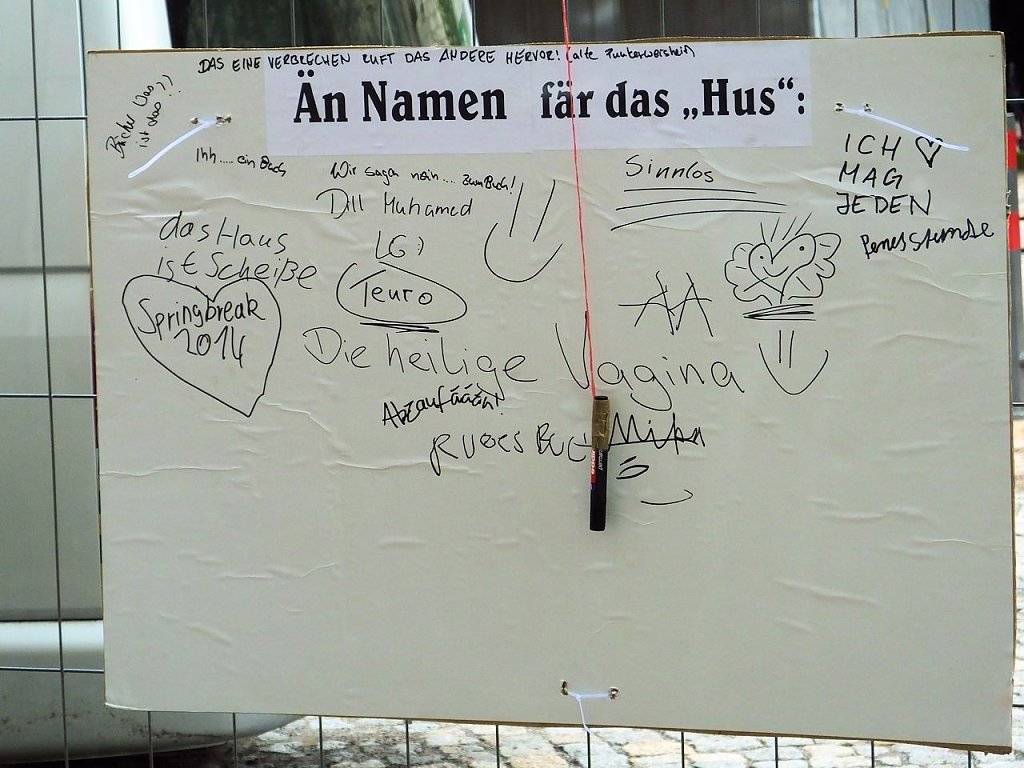 DAS EINE VERBRECHEN RUFT DAS ANDERE HERVOR! (alte
Än Namen fär das „Hus“:
Bücher Was
ist das??
Ihh.... ein Buch
Wir sagen nein... zum Buch!
Dill Muhamed
LG :)
Sinnlos
ICH
MAG
JEDEN
das Haus
ist Scheiße
1euro
Springbreak
2014
AA
Die heilige Vagina
Abzaufäään!
Mika